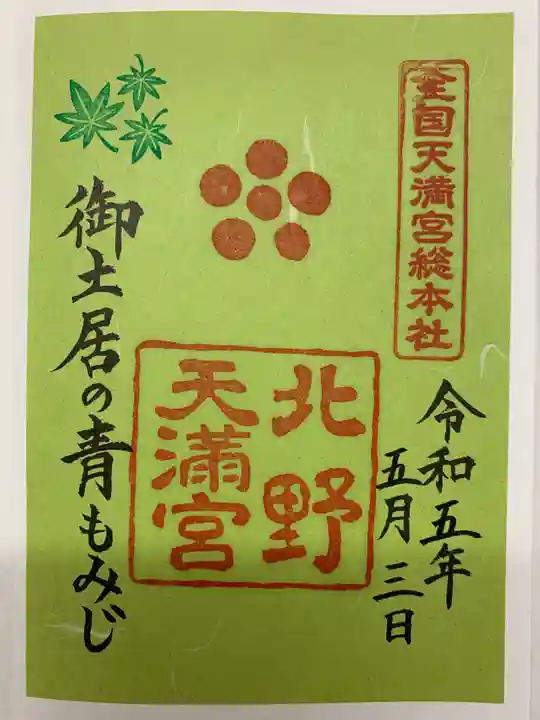 全国天満宮総本社
令和五年
五月三日
北野
天満宮
御土居の青もみじ